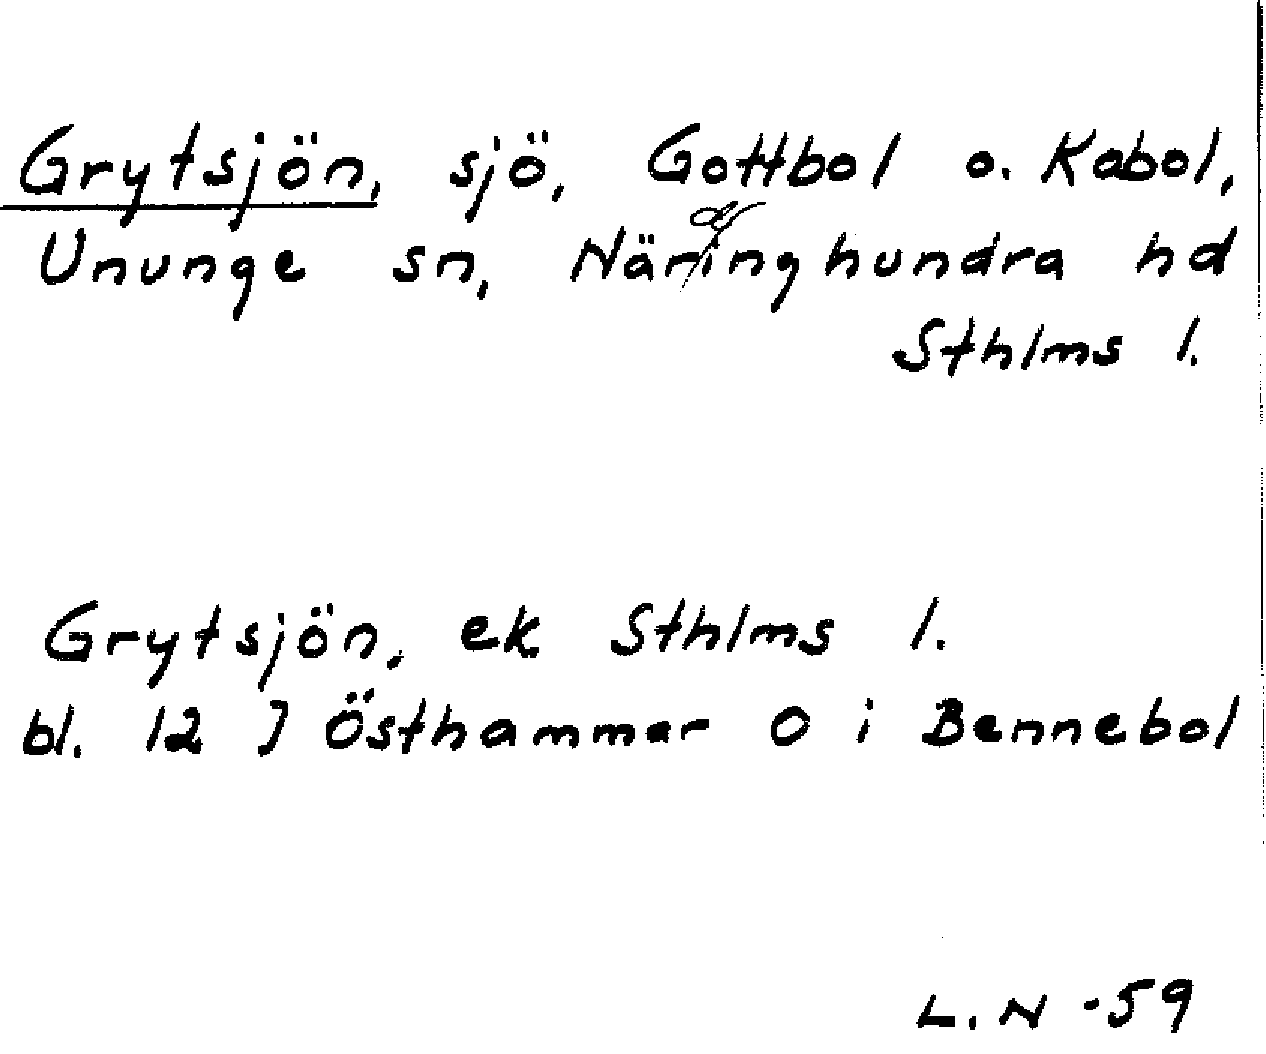 Grytsjön, sjö, Gottbol o. Kabol,
Ununge sn, Närdinghundra hd
Sthlms l.
Grytsjön, ek Sthlms l.
bl. 12 J Östhammar O i Bennebol
L. N -59